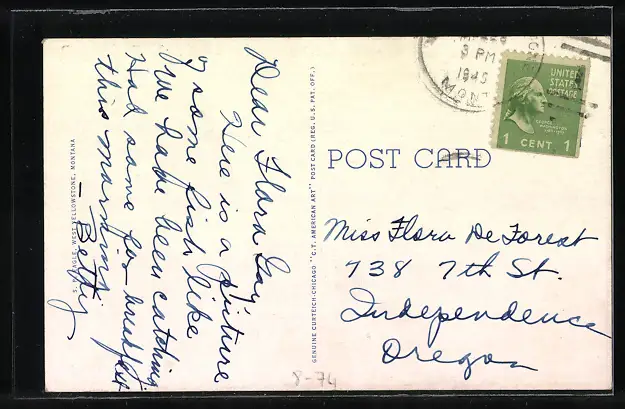 Dear Flora Gay
Here is a picture
of some fish like
we have been catching.
Had some for breakfast
this morning.
— Betty
S. WEST YELLOWSTONE, MONTANA
GENUINE CURTEICH-CHICAGO "C.T. AMERICAN ART" POST CARD (REG. U.S. PAT. OFF.)
POST CARD
3 PM
MONT
UNITED
STATES
POSTAGE
GEORGE
WASHINGTON
1 CENT 1
Miss Flora DeForest
738 7th St.
Independence
Oregon
8-74